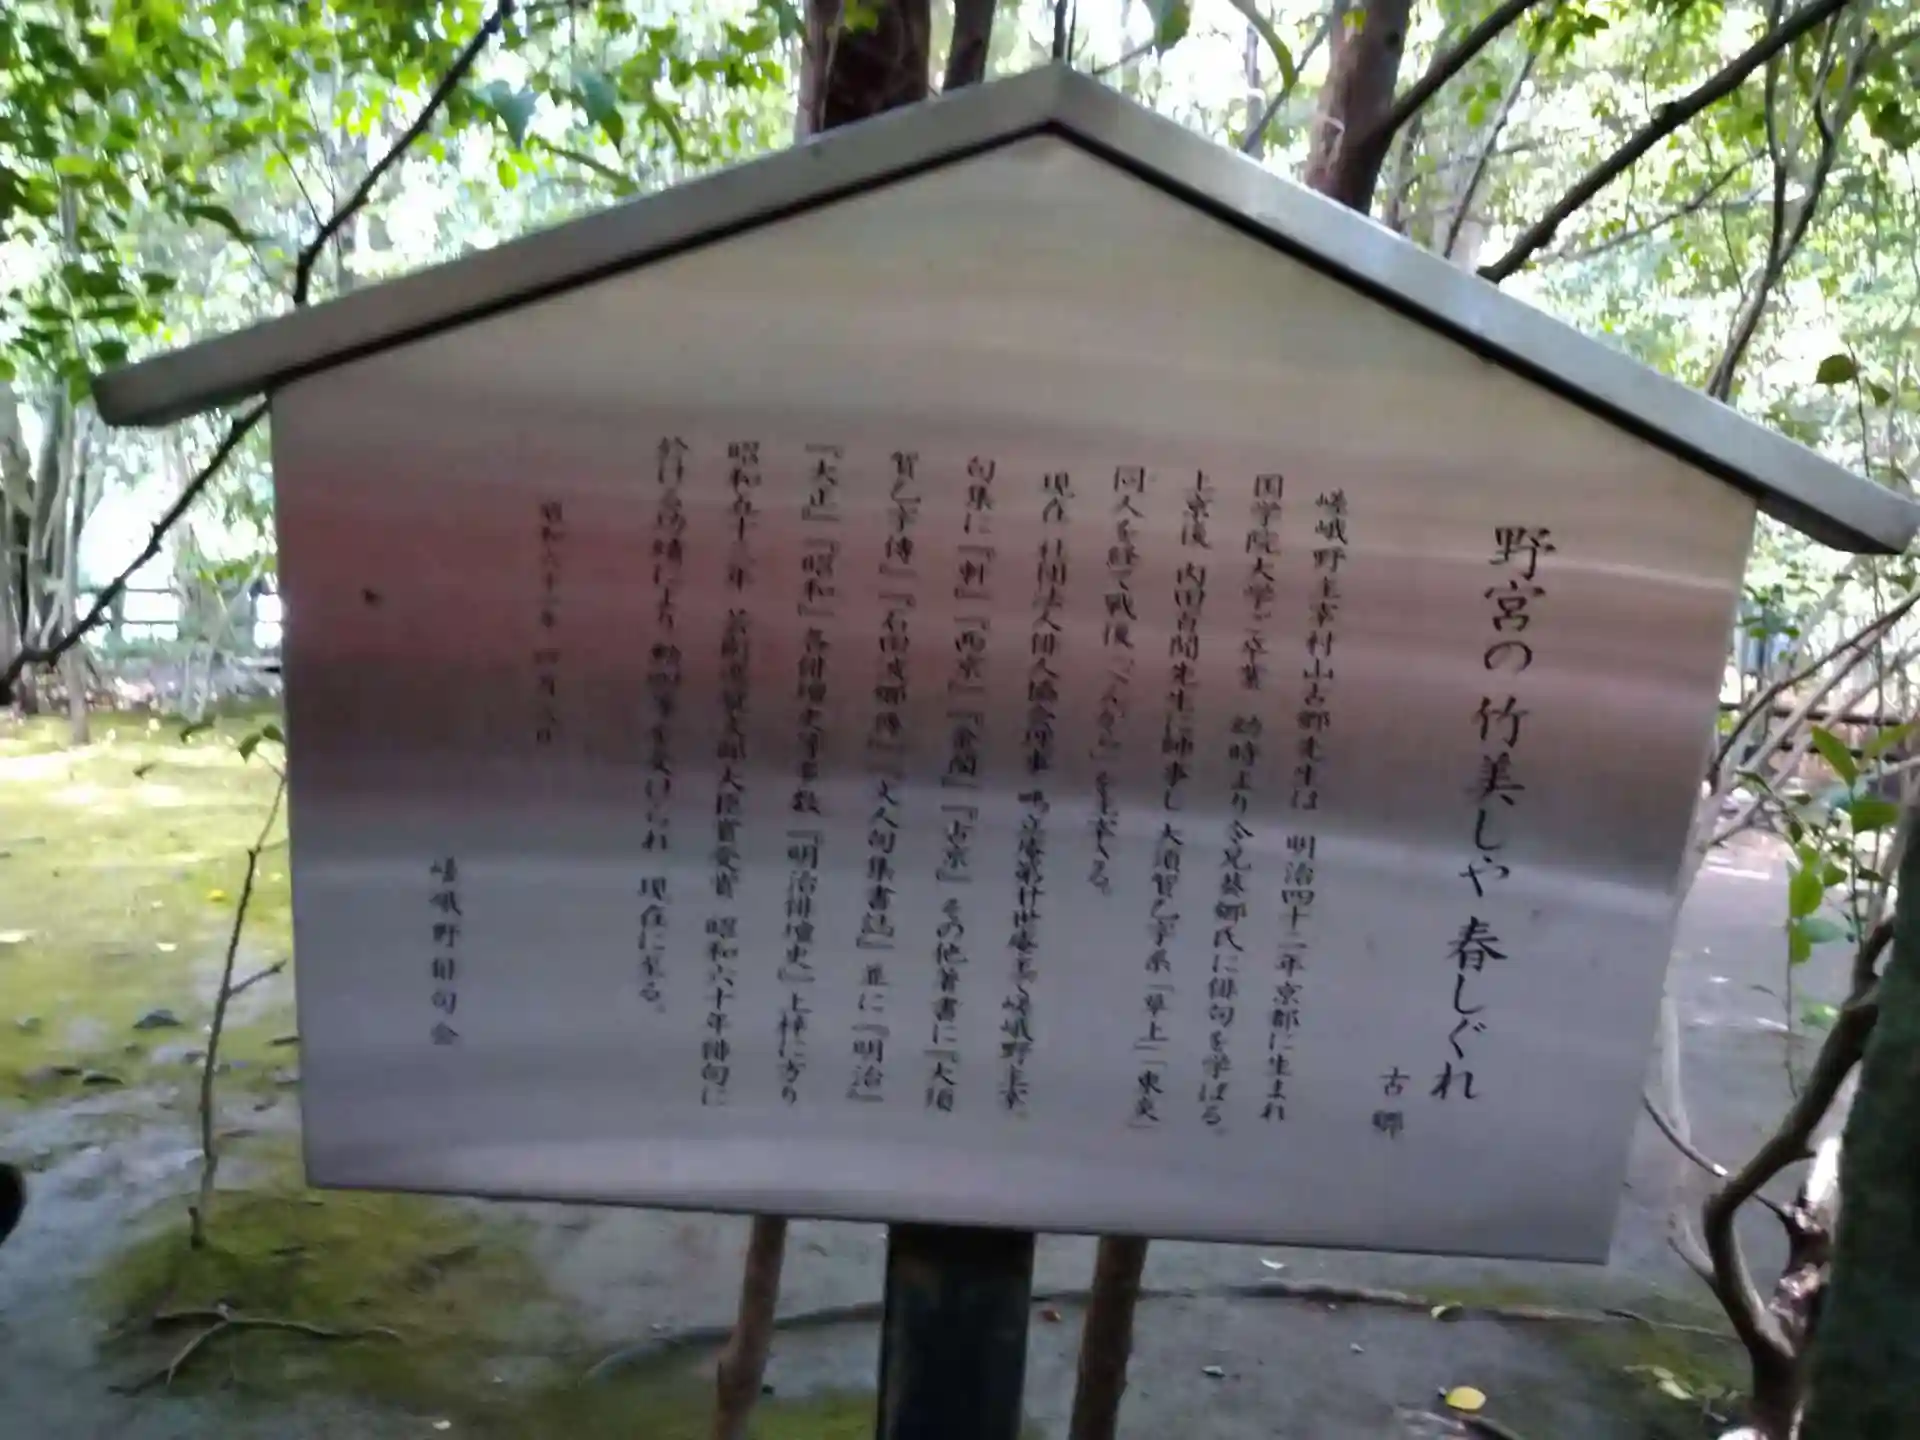 野宮の竹美しや春しぐれ
古郷
嵯峨野主宰村山古郷先生は 明治四十二年京都に生まれ
国学院大学ご卒業 幼時より令兄葵郷氏に俳句を学ばる。
上京後 内田百閒先生に師事し大須賀乙字系「草上」「東炎」
同人を経て戦後「べんがら」を主宰くる。
現在 社団法人俳人協会理事 鴫立庵第廿世庵主で嵯峨野主宰。
句集に『軒』『西京』『金閣』『古京』その他著書に『大須
賀乙字傳』『石田波郷傳』『文人句集書誌』並に『明治』
『大正』『昭和』各俳壇史等多数『明治俳壇史』上梓に方り
昭和五十三年 芸術選奨文部大臣賞受賞 昭和六十年俳句に
於ける功績により 勲四等を受けられ 現在に至る。
昭和六十一年 四月 日
嵯峨野俳句会